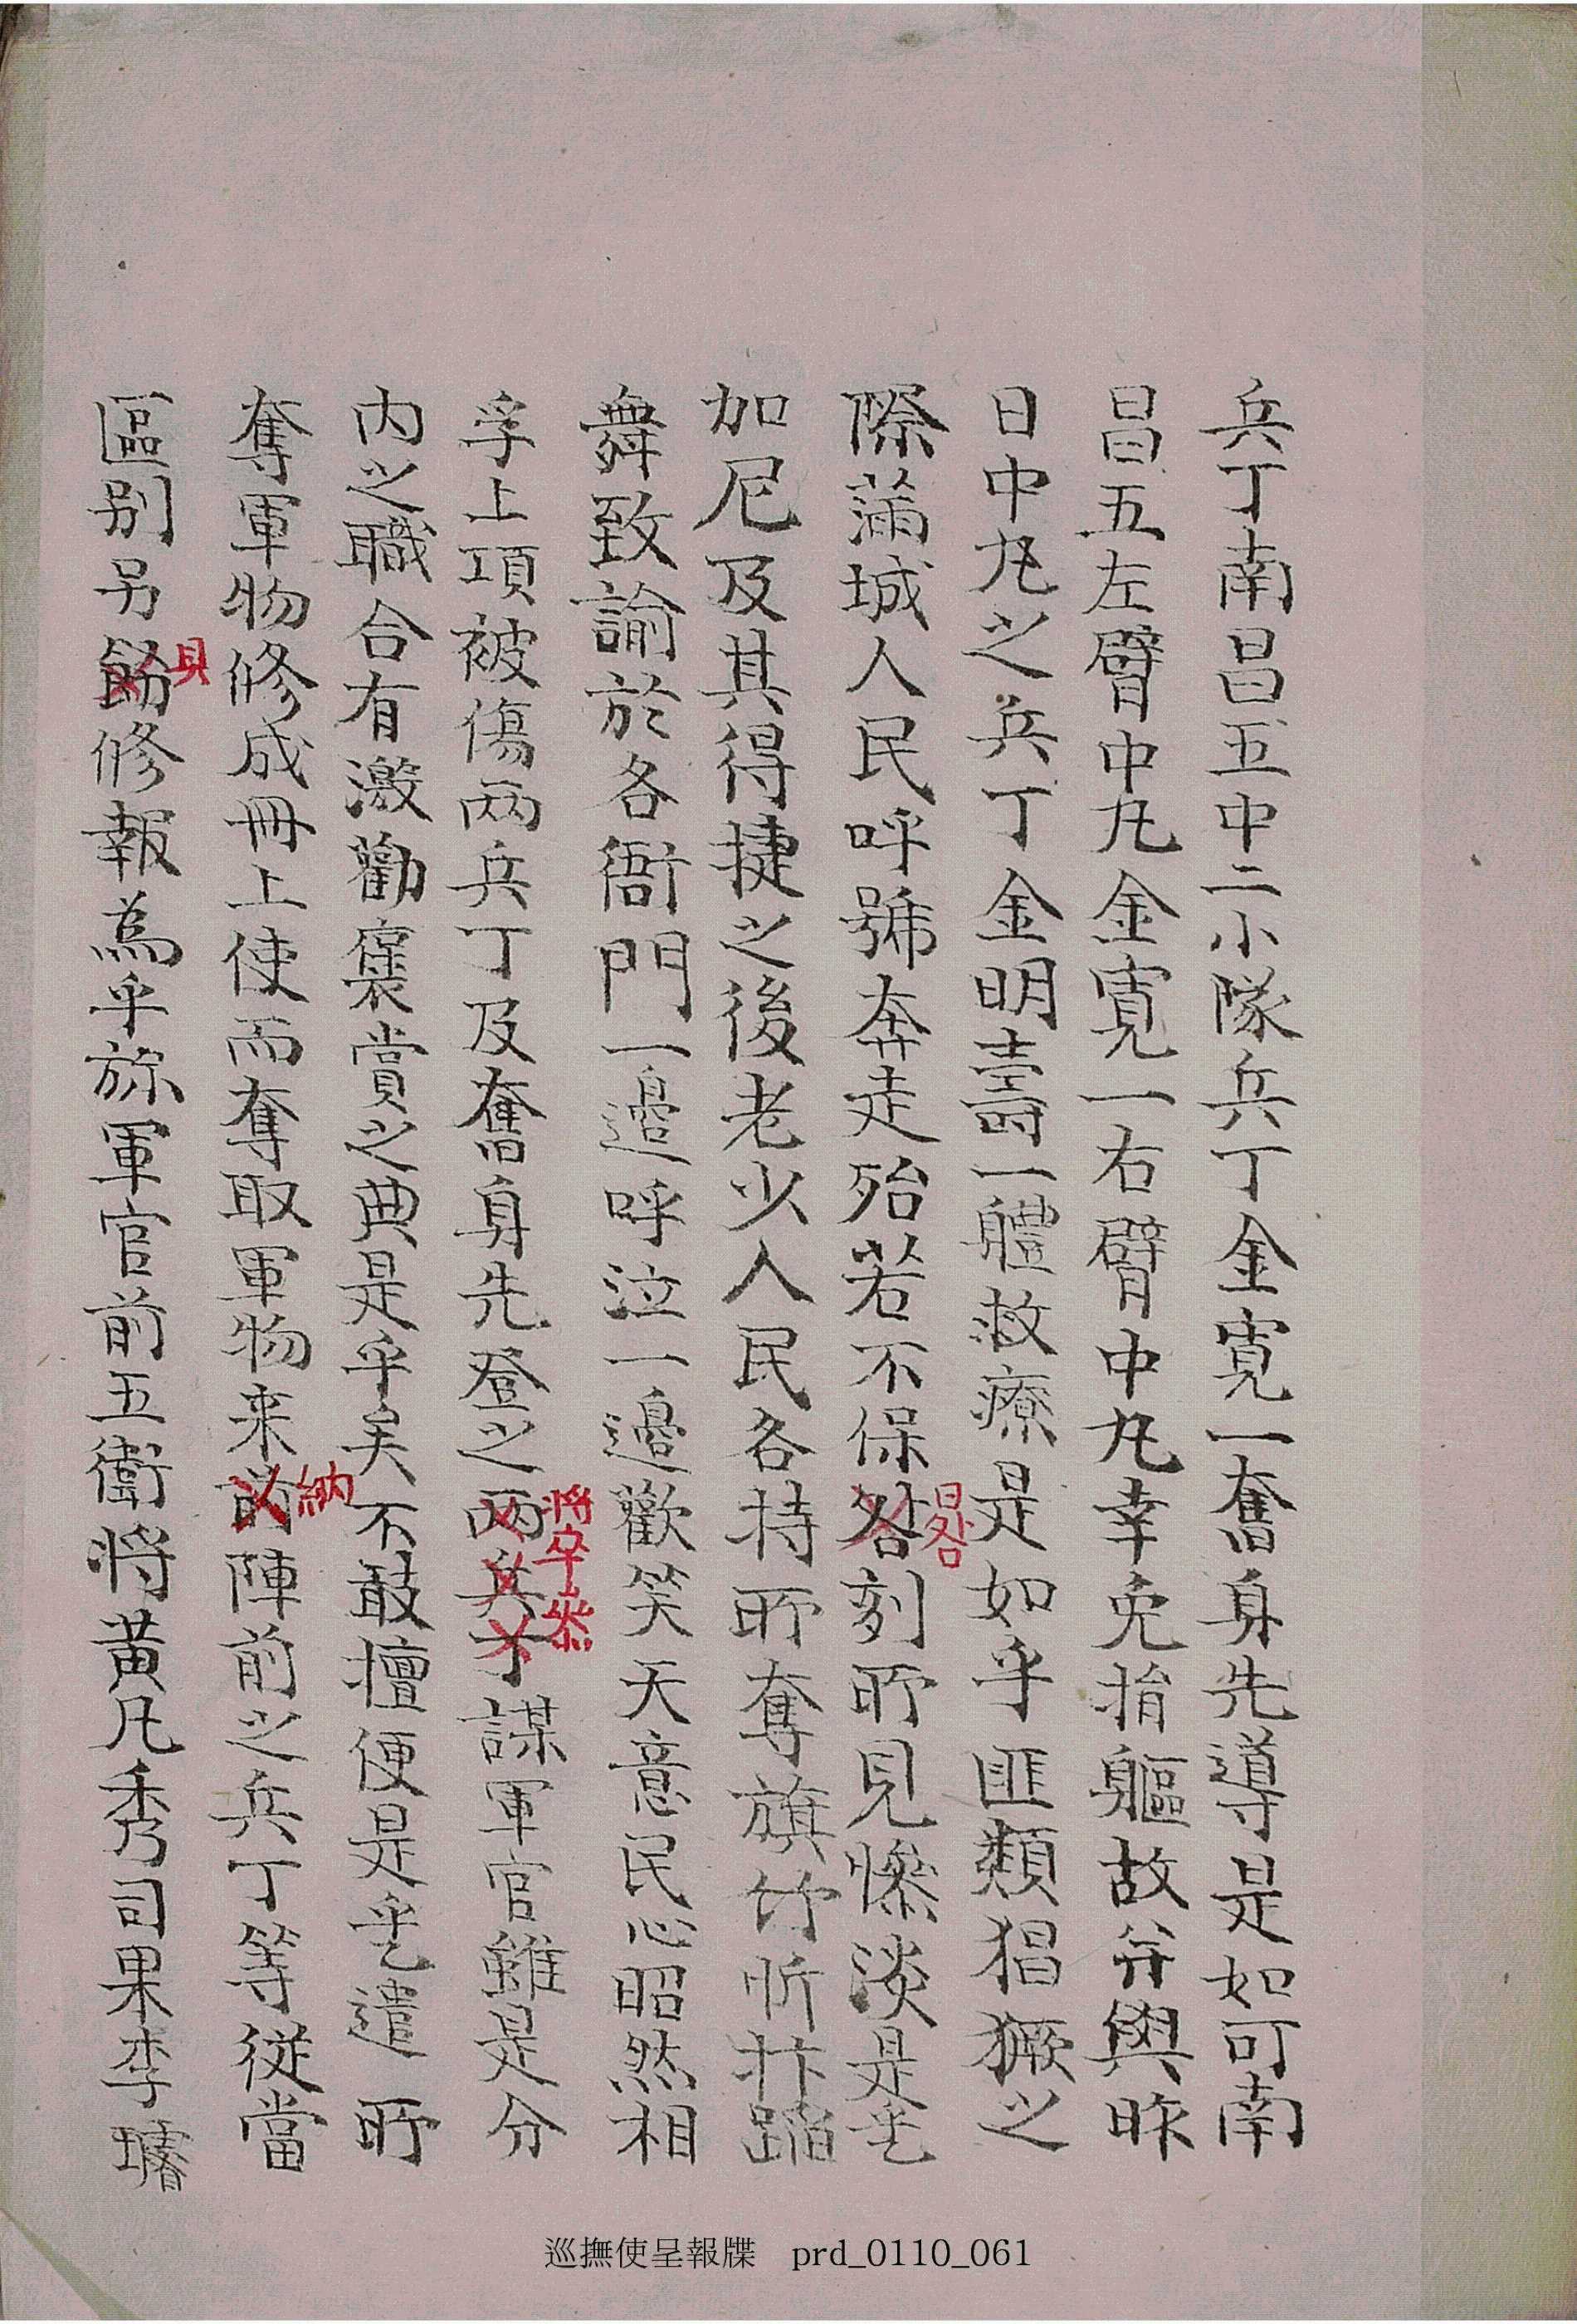 兵丁南昌五中二小隊兵丁金寬一奮身先導是如可南
昌五左臂中丸金寬一右臂中丸幸免捐軀故弁與昨
日中丸之兵丁金明壽一軆救療是如乎匪類猖獗之
際滿城人民呼號奔走殆若不保㖈刻所見慘淡是乎乙
晷
加尼及其得捷之後老少人民各持所奪旗竹忻抃蹈
舞致諭於各衙門一邊呼泣一邊歡笑天意民心昭然相
孚上項被傷兩兵丁及奮身先登之兩兵丁謀軍官雖是分
將卒叅
內之職合有激勸褒賞之典是乎矣不敢擅便是乎乙遣所
奪軍物修成冊上使而奪取軍物来前陣前之兵丁等從當
納
區別另飭修報爲乎旀軍官前五衛將黃凡秀司果李璿
具
巡撫使呈報牒 prd_0110_061